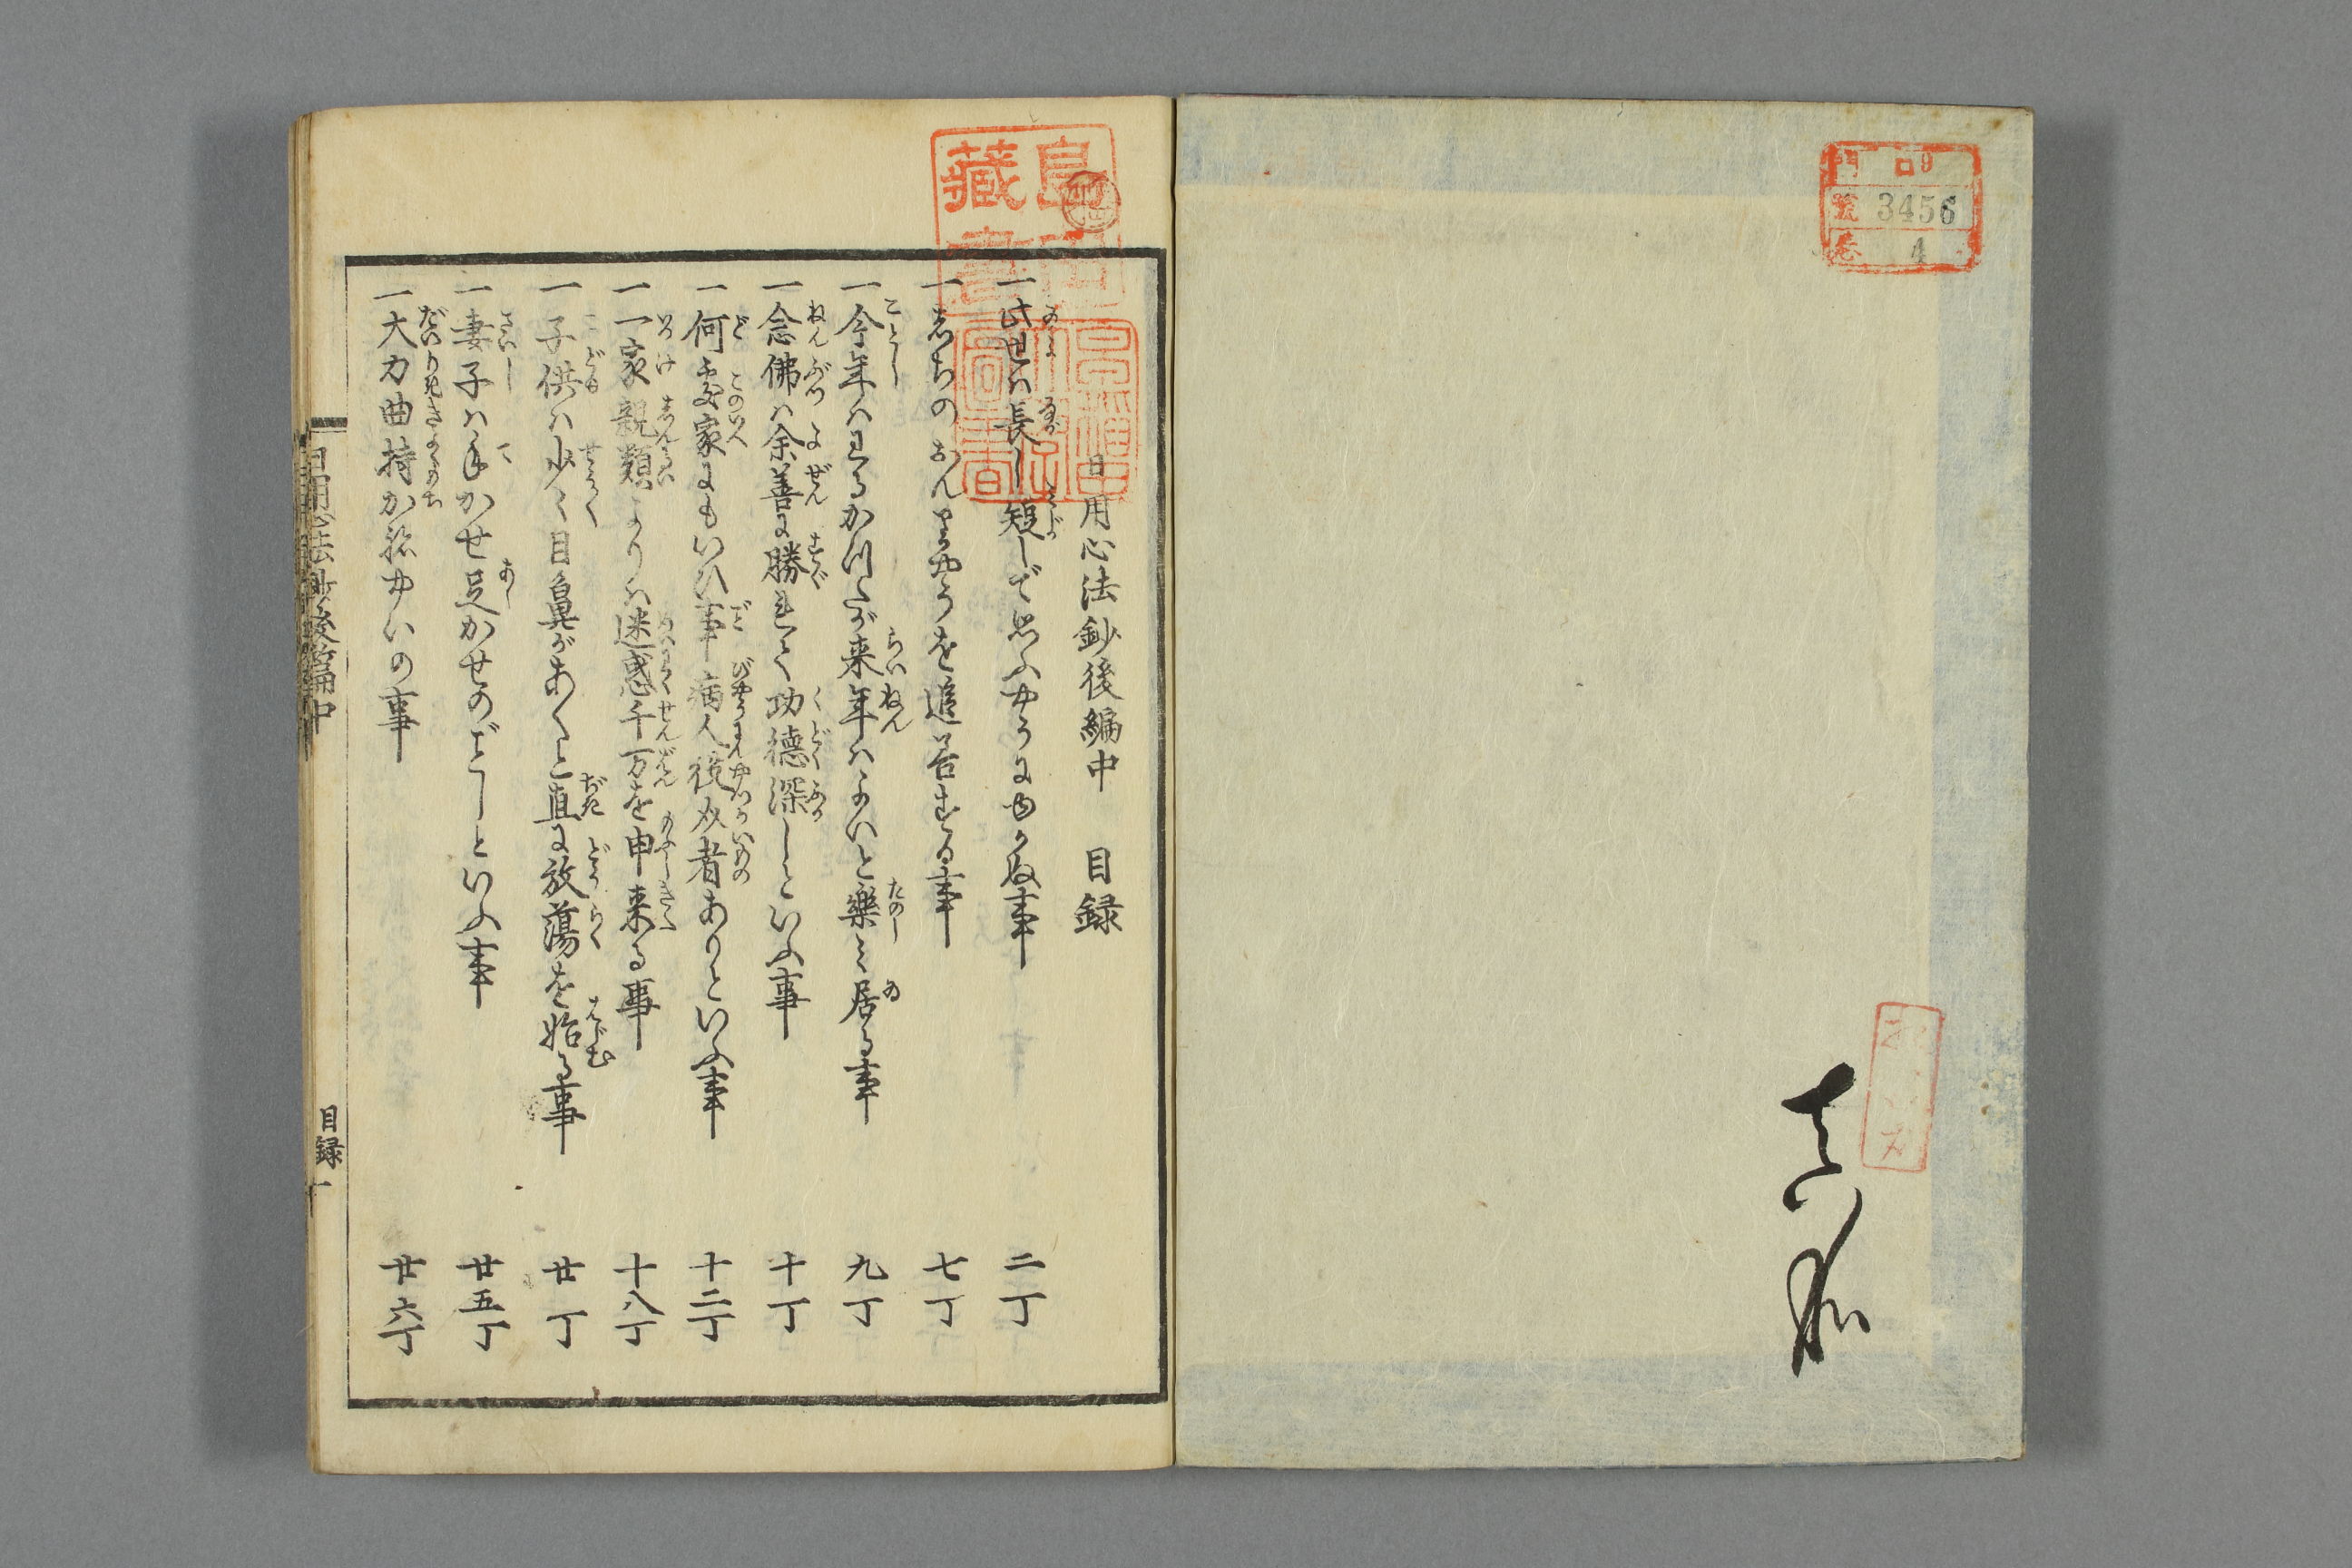 門 口9
號 3456
卷 4
日用心法鈔後編中 目録
一此世ハ長し短しで思ふやうにゆかぬ事 二丁
を追善する事 七丁
一今年ハわるかつたが来年ハよいと樂ミ居る事 九丁
一念佛ハ余善に勝れて功徳深しといふ事 十丁
一何處家にもいひ事病人役介者ありといふ事 十二丁
一一家親類よりハ迷惑千万を申来る事 十八丁
一子供ハ少々目鼻があくと直に放蕩を始る事 廿丁
一妻子ハ手かせ足かせのごしといふ事 廿五丁
一大力曲持かねやいの事 廿六丁
日用心法鈔後篇中 目録 一